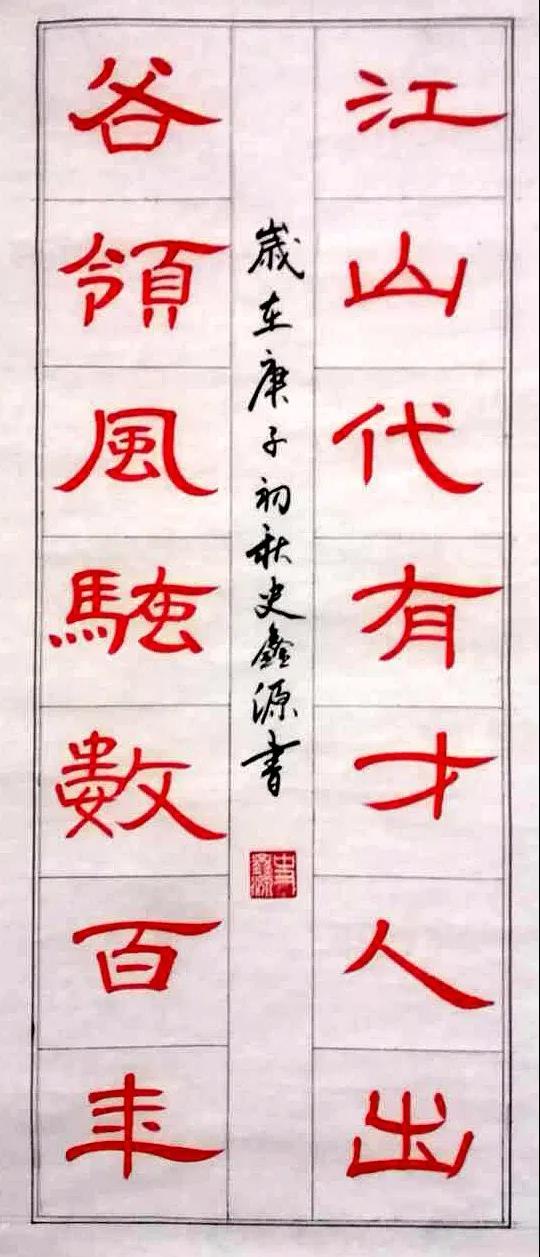 江山代有才人出
各領風騷數百年
歲在庚子初秋史鑫源書
史鑫源